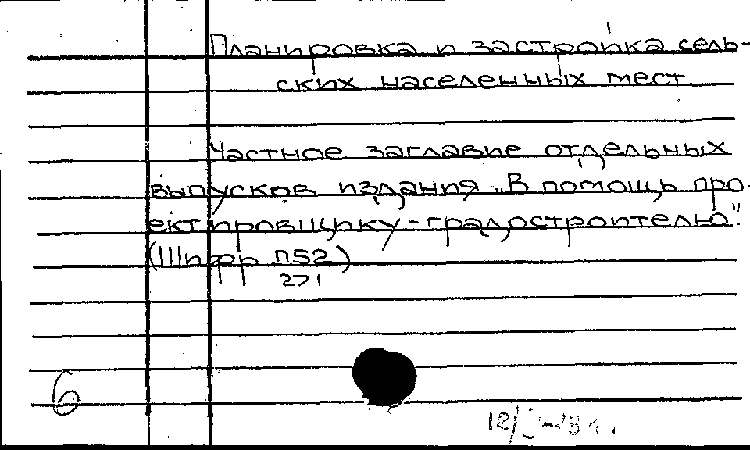 Планировка и застройка сель-
ских населенных мест
Частное заглавие отдельных
выпусков издания „В помощь про-
ектировщику-градостроителю".
(Шифр П52
271)
6